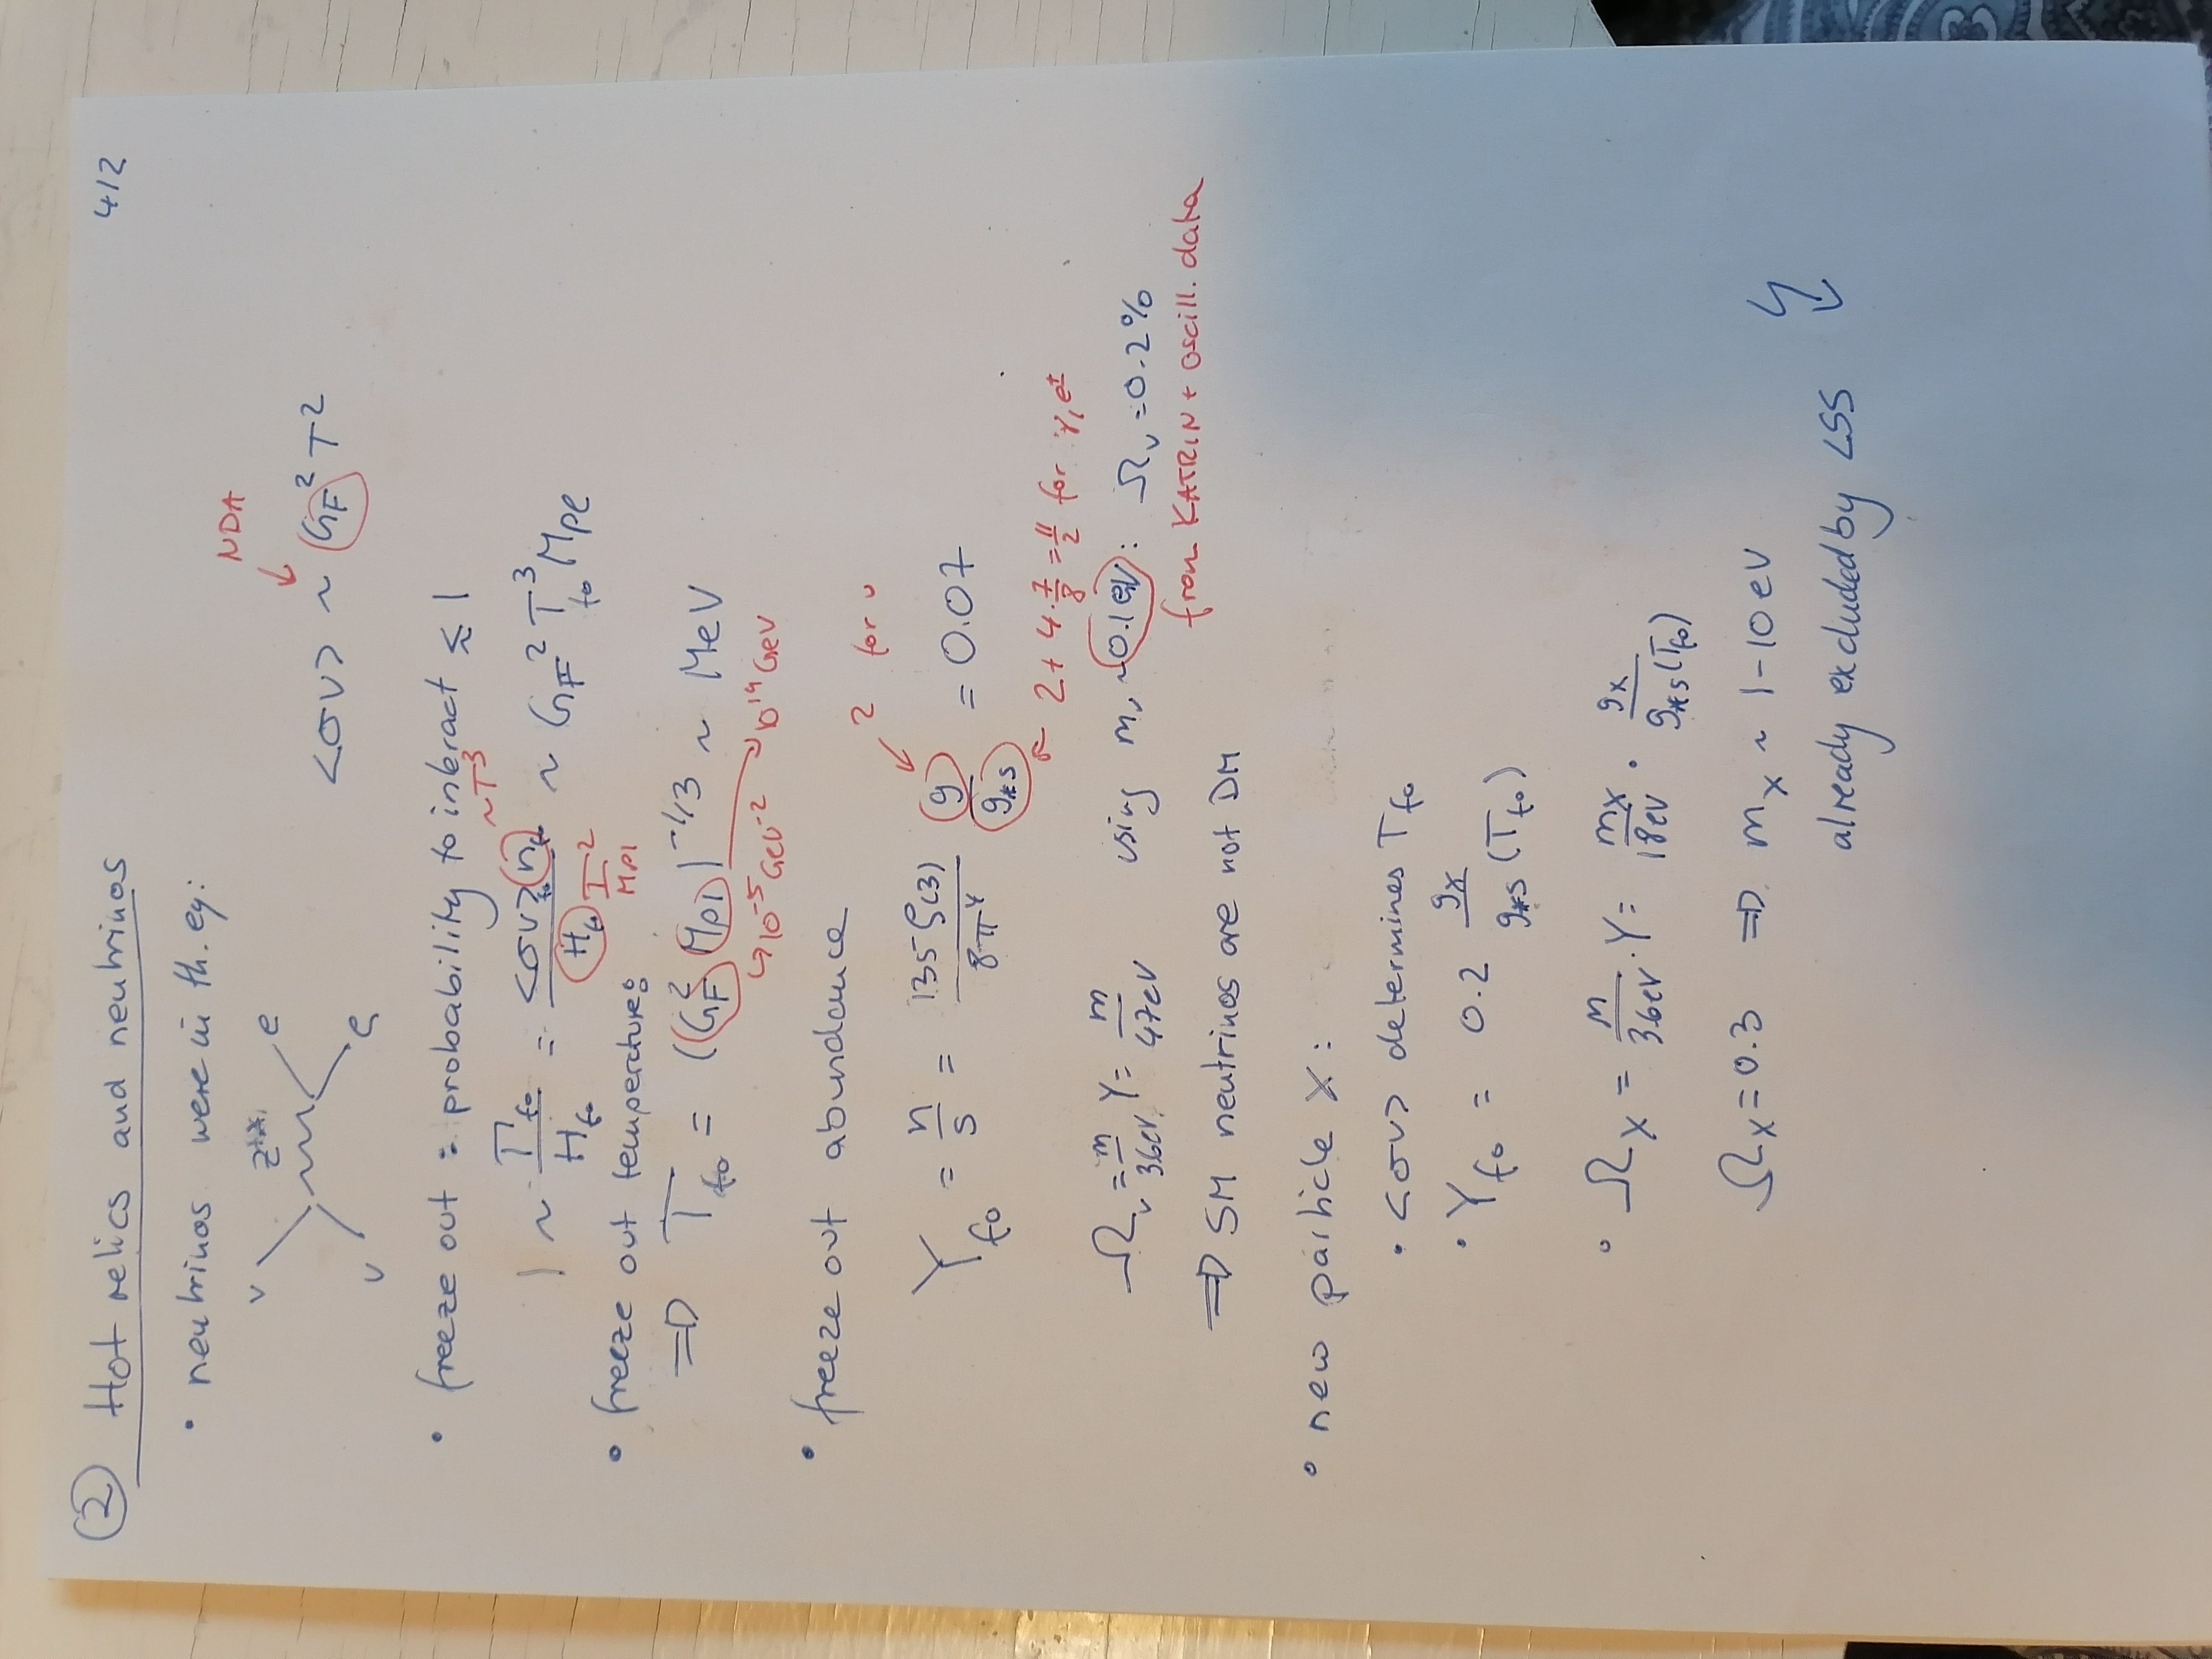 ② Hot relics and neutrinos 4/2
• neutrinos were in th. eq:
ν e
ν e
NDA
<σv> ~ G_F² T²
• freeze out : probability to interact ≲ 1
1 ~ Γ_fo/H_fo = <σv>_fo n_fo/H_fo ~ G_F² T_fo³ M_Pl
~T³
T²/M_Pl
• freeze out temperature:
⇒ T_fo = (G_F² M_Pl)^-1/3 ~ MeV
10^-5 GeV^-2 10^19 GeV
• freeze out abundance
2 for ν
Y_fo = n/s = 135 ζ(3)/8π⁴ g/g_*s = 0.07
2 + 4·7/8 = 11/2 for γ, e±
Ω_ν = m/3.6eV Y = m/47eV using m_ν ~ 0.1 eV: Ω_ν = 0.2%
from KATRIN + oscill. data
⇒ SM neutrinos are not DM
• new particle X:
• <σv> determines T_fo
• Y_fo = 0.2 g_X/g_*s(T_fo)
• Ω_X = m/3.6eV · Y = m_X/18eV · g_X/g_*s(T_fo)
Ω_X = 0.3 ⇒ m_X ~ 1-10 eV
already excluded by LSS